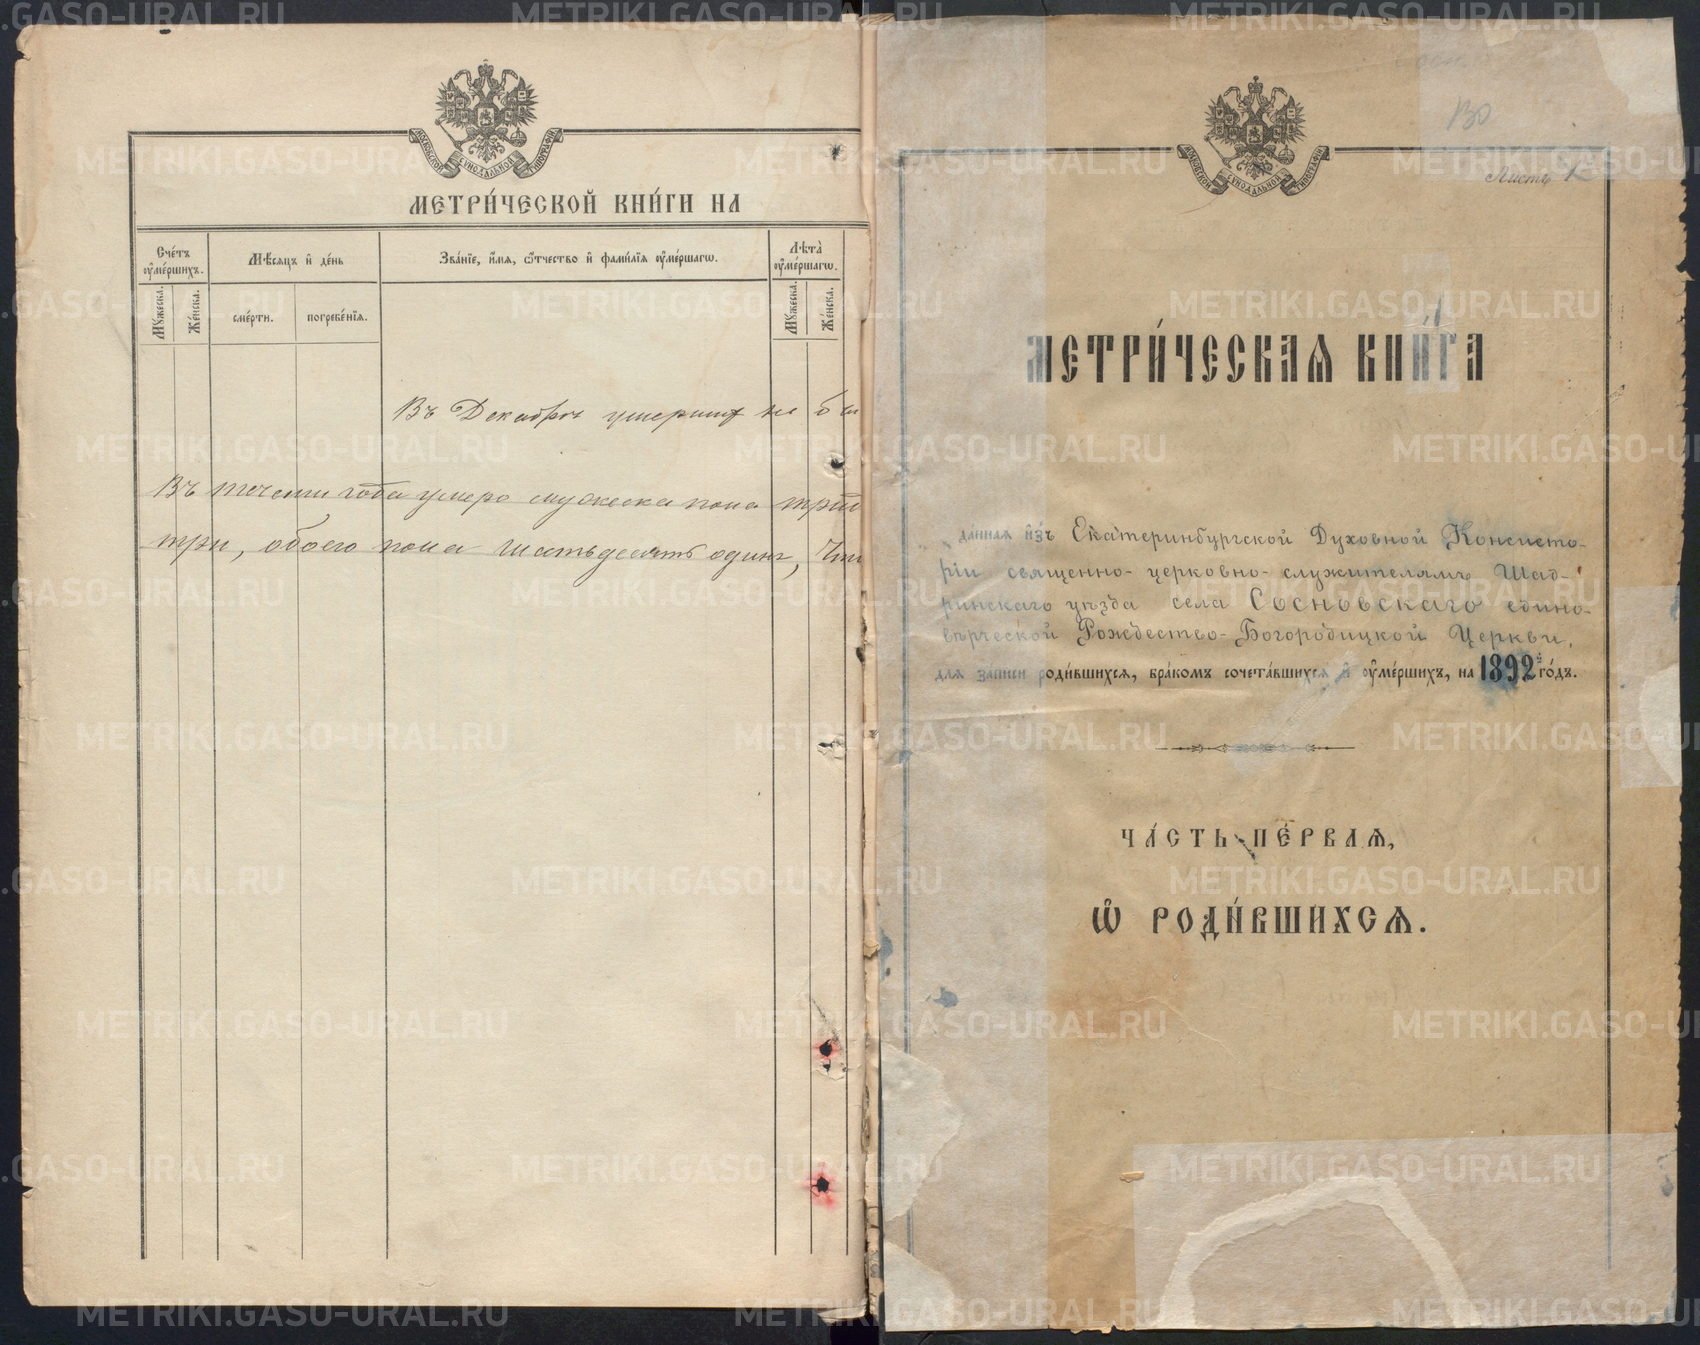 МОСКОВСКОЙ СѴНОДАЛЬНОЙ ТИПОГРАФІИ
МЕТРИ́ЧЕСКОЙ КНИ́ГИ НА
Сче́тъ оуме́ршихъ.
Мѣ́сяцъ и де́нь
Зва́нїе, и́мя, ѻ́тчество и фами́лїя оуме́ршагѡ.
Лѣта̀ оуме́ршагѡ.
Мꙋ́жеска.
Же́нска.
сме́рти.
погребе́нїя.
Мꙋ́жеска.
Же́нска.
Въ Декабрѣ умершихъ не бы
Въ течении года умерло мужеска пола три
три, обоего пола шестьдесятъ одинъ, Что
МОСКОВСКОЙ СѴНОДАЛЬНОЙ ТИПОГРАФІИ
Листъ
МЕТРИ́ЧЕСКАЯ КНИ́ГА
да́нная и́зъ Екатеринбургской Духовной Консисто-
ріи священно-церковно-служителямъ Шад-
ринскаго уѣзда села Сосновскаго едино-
вѣрческой Рождество-Богородицкой Церкви,
для за́писи роди́вшихся, бра́комъ сочета́вшихся и оуме́ршихъ, на 1892 го́дъ.
ЧА́СТЬ ПЕ́РВАЯ,
Ѡ РОДИ́ВШИХСЯ.
METRIKI.GASO-URAL.RU